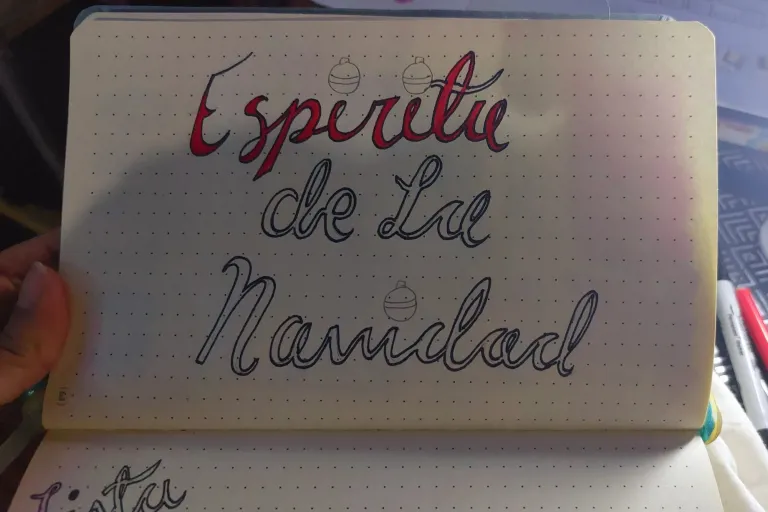 Espiritu
de La
Navidad
Lista